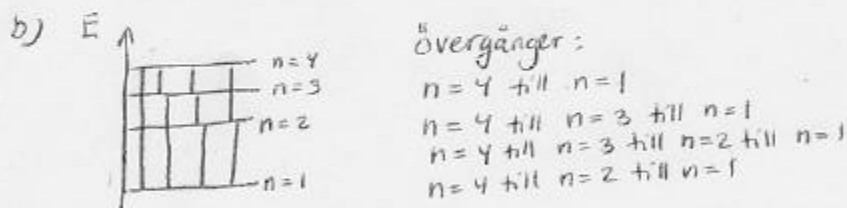 b) E
n=4
n=3
n=2
n=1
Övergånger:
n = 4 till n = 1
n = 4 till n = 3 till n = 1
n = 4 till n = 3 till n = 2 till n = 1
n = 4 till n = 2 till n = 1